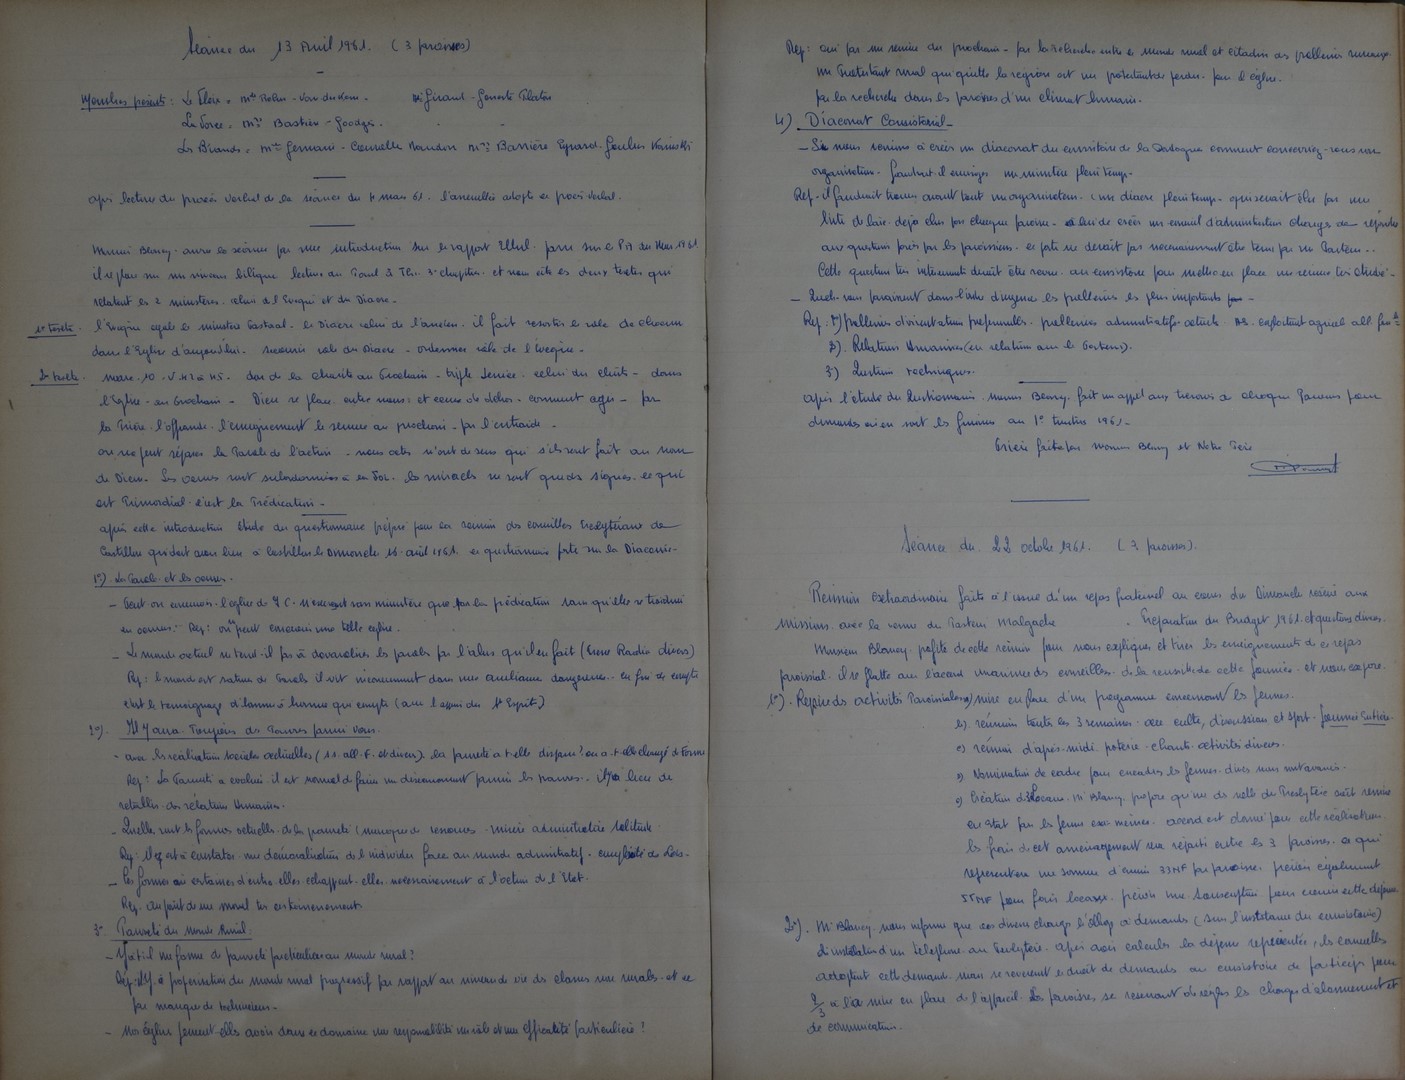 Séance du 13 Avril 1961. (3 paroisses)
Membres présents : Le Fleix =
La Force =  Bastier -
Les Briands =  Barrière
après lecture du procès verbal de la séance du  mars 61. l'assemblée adopte ce procès verbal.
ouvre la séance par une introduction sur le rapport
il se place sur un niveau biblique  3e chapitre. et nous cite les deux textes qui
relatent les 2 ministères. celui de l'Evêque et du Diacre.
1er texte. l'Evêque égale le ministère Pastoral. le Diacre celui de l'ancien. il fait ressortir le rôle de chacun
dans l'Eglise d'aujourd'hui.  rôle du Diacre -  rôle de l'Evêque.
2e texte.  10 - V 42 à 45 -  de la charité au Prochain - triple service. celui du Christ - dans
l'Eglise - au Prochain - Dieu se place entre nous : et ceux du dehors - comment agir - par
la Prière. l'offrande. l'enseignement le service au prochain - par l'entraide -
on ne peut séparer la Parole de l'action - nos actes n'ont de sens que s'ils sont fait au nom
de Dieu. Les œuvres sont subordonnées à la Foi. les miracles ne sont que des signes. ce qui
est Primordial c'est la Prédication -
après cette introduction Etude du questionnaire préparé pour la réunion des conseillers Presbytéraux de
Castillon qui doit avoir lieu à Castillon le Dimanche 16 avril 1961. ce questionnaire porte sur la Diaconie -
1°) La Parole et les œuvres.
- Peut on concevoir l'église de J C.  son ministère que par la prédication sans qu'elle se traduise
en œuvres - Rep : on peut concevoir une telle église.
- Le monde actuel ne tend-il pas à dévaloriser les paroles par l'abus qu'il en fait ( Radio divers)
Rep : le monde est saturé de Paroles il vit  dans une ambiance dangereuse. en fin de compte
c'est le témoignage d'homme à homme qui compte (avec l'appui du St Esprit)
2°) Il y aura Toujours des Pauvres parmi Vous.
- avec les réalisations sociales actuelles (S.S. all. F. et divers). la pauvreté a t elle disparu ? ou a t-elle changé de Forme
Rep : La Pauvreté a évolué il est normal de faire un discernement parmi les pauvres. il y a lieu de
rétablir des relations Humaines.
- Quelles sont les formes actuelles de la pauvreté (manque de ressources - misère administrative solitude
Rep : Il est à constater une démoralisation de l'individu face au monde administratif. complexité des Lois.
- Ces formes ou certaines d'entre elles échappent-elles nécessairement à l'action de l'Etat.
Rep. Au point de vue moral très certainement
3° Pauvreté du Monde Rural.
- Y a t il une forme de pauvreté particulière au monde rural ?
Rep : Il y a  du monde rural progressif par rapport au niveau de vie des classes non rurales. et ce
par manque de techniciens.
- Nos églises peuvent elles avoir dans ce domaine une responsabilité sociale et une efficacité particulière ?
Rep : oui par un service du prochain - par la recherche entre le monde rural et citadin des palliatifs
un Protestant rural qui quitte la région est un protestant de perdu pour l'église.
par la recherche dans les paroisses d'un climat humain.
4) Diaconat Consistorial -
- Si nous venions à créer un diaconat du consistoire de la Dordogne comment concevriez-vous une
organisation - Faudrait-il envisager un ministère plein temps -
Rep - il faudrait trouver avant tout un organisateur - un diacre plein temps - qui serait élu par une
liste de laïcs déjà élus par chaque paroisse -  de créer un conseil d'administration chargé de répondre
aux questions posées par les paroissiens. ce poste ne devrait pas nécessairement être tenu par un Pasteur..
Cette question très intéressante devrait être revue au consistoire pour mettre en place un service très étudié -
- Quels vous paraissent dans l'ordre d'urgence les problèmes les plus importants -
Rep : 1°)  administratifs actuels
2°). Relations Humaines (en relation avec le Pasteur).
3°) Questions techniques.
après l'étude du Questionnaire, Monsieur Blancy. fait un appel aux trésoriers de chaque Paroisse pour
demander où en sont les finances au 1er trimestre 1961 -
Prière faite par Monsieur Blancy et Notre Père
Séance du 22 octobre 1961. (3 paroisses).
Réunion Extraordinaire faite à l'issue d'un repas fraternel au cours du Dimanche réservé aux
Missions, avec la venue du Pasteur Malgache . Préparation du Budget 1961. et questions diverses.
Monsieur Blancy. profite de cette réunion pour nous expliquer et tirer les enseignements de ce repas
paroissial. il se flatte avec l'accord unanime des conseillers - de la réussite de cette journée - et nous expose.
1°). Reprise des activités Paroissiales a) mise en place d'un programme concernant les jeunes.
b) réunion toutes les 3 semaines - avec culte, discussion et sport - Journée Entière.
c) réunion d'après-midi. poterie - chants - activités diverses.
d) Nomination de cadre pour encadrer les jeunes
e) Création d'1 Local - Mr Blancy. propose qu'une des salles du Presbytère soit remise
en état par les jeunes eux-mêmes. accord est donné pour cette réalisation.
les frais de cet aménagement sera réparti entre les 3 paroisses. ce qui
représentera une somme d'environ 33 NF par paroisse. prévoir également
 NF pour frais locaux. prévoir une Souscription pour couvrir cette dépense.
2°). Mr Blancy. nous informe que  demander (sur l'instance du consistoire)
d'installation d'un téléphone au Presbytère. après avoir calculé la dépense représentée, les conseillers
adoptent cette demande. mais se réservent le droit de demander au consistoire de participer pour
2/3 à la mise en place de l'appareil. Les paroisses se réservant de régler les charges d'abonnement et
de communication.